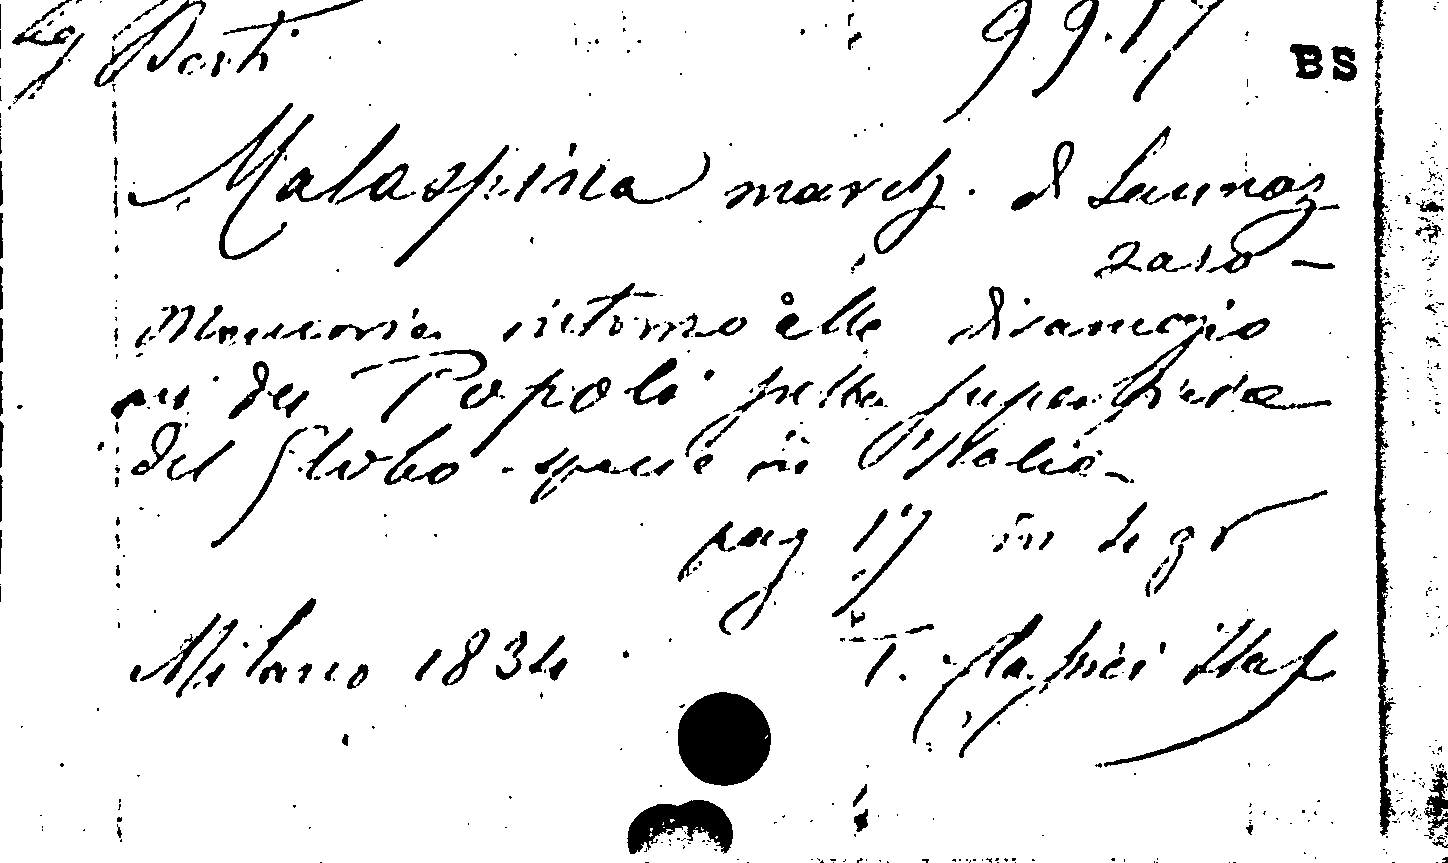 Leg Porti 99.17 BS
Malaspina march. di Sannaz
zaro -
Memoria intorno alle diramazio
ni dei Popoli sulla superficie
del Globo specie in Italia
pag 17 in 4 gr
Milano 1834 T. Classici Ital